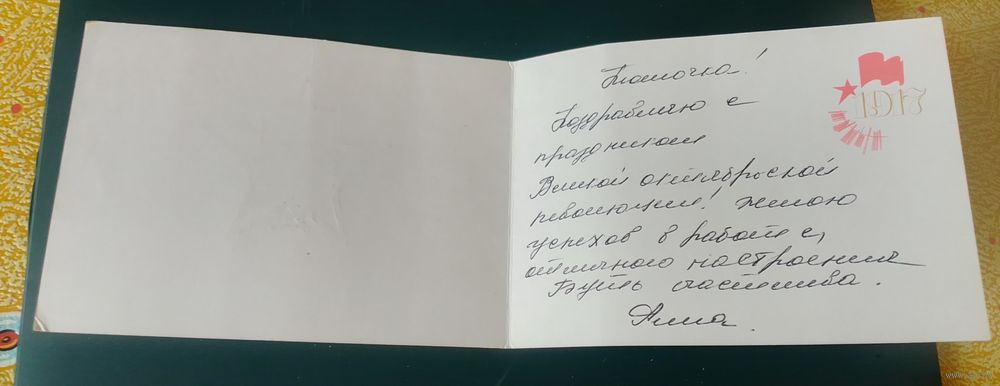 Томочка!
1917
Поздравляю с
праздником
Великой октябрьской
революции! Желаю
успехов в работе,
отличного настроения
Будь счастлива.